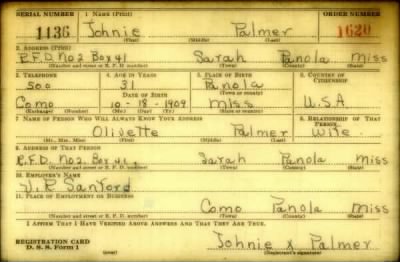 SERIAL NUMBER 1. NAME (Print) ORDER NUMBER
1136 Johnie Palmer 1620
(First) (Middle) (Last)
2. ADDRESS (Print)
R.F.D. No 2 Box 41 Sarah Panola Miss
(Number and street or R. F. D. number) (Town) (County) (State)
3. TELEPHONE 4. AGE IN YEARS 5. PLACE OF BIRTH 6. COUNTRY OF CITIZENSHIP
500 31 Panola
DATE OF BIRTH (Town or county)
Como 10-18-1909 Miss U.S.A
(Exchange) (Number) (Mo.) (Day) (Yr.) (State or country)
7. NAME OF PERSON WHO WILL ALWAYS KNOW YOUR ADDRESS 8. RELATIONSHIP OF THAT PERSON
Olivette Palmer Wife
(Mr., Mrs., Miss) (First) (Middle) (Last)
9. ADDRESS OF THAT PERSON
R.F.D. No 2. Box 41 Sarah Panola Miss
(Number and street or R. F. D. number) (Town) (County) (State)
10. EMPLOYER'S NAME
Sanford
11. PLACE OF EMPLOYMENT OR BUSINESS
Como Panola Miss
(Number and street or R. F. D. number) (Town) (County) (State)
I AFFIRM THAT I HAVE VERIFIED ABOVE ANSWERS AND THAT THEY ARE TRUE.
REGISTRATION CARD
D. S. S. Form 1 Johnie x Palmer
(Registrant's signature)